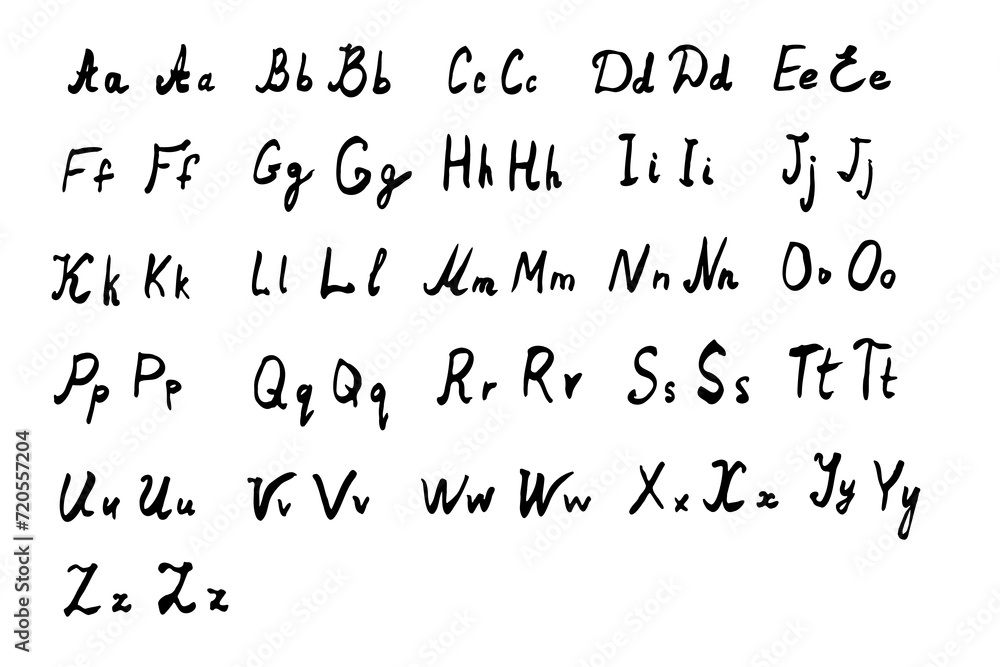 Aa Aa Bb Bb Cc Cc Dd Dd Ee Ee
Ff Ff Gg Gg Hh Hh Ii Ii Jj Jj
Kk Kk Ll Ll Mm Mm Nn Nn Oo Oo
Pp Pp Qq Qq Rr Rr Ss Ss Tt Tt
Uu Uu Vv Vv Ww Ww Xx Xx Yy Yy
Zz Zz
Adobe Stock | #720557204